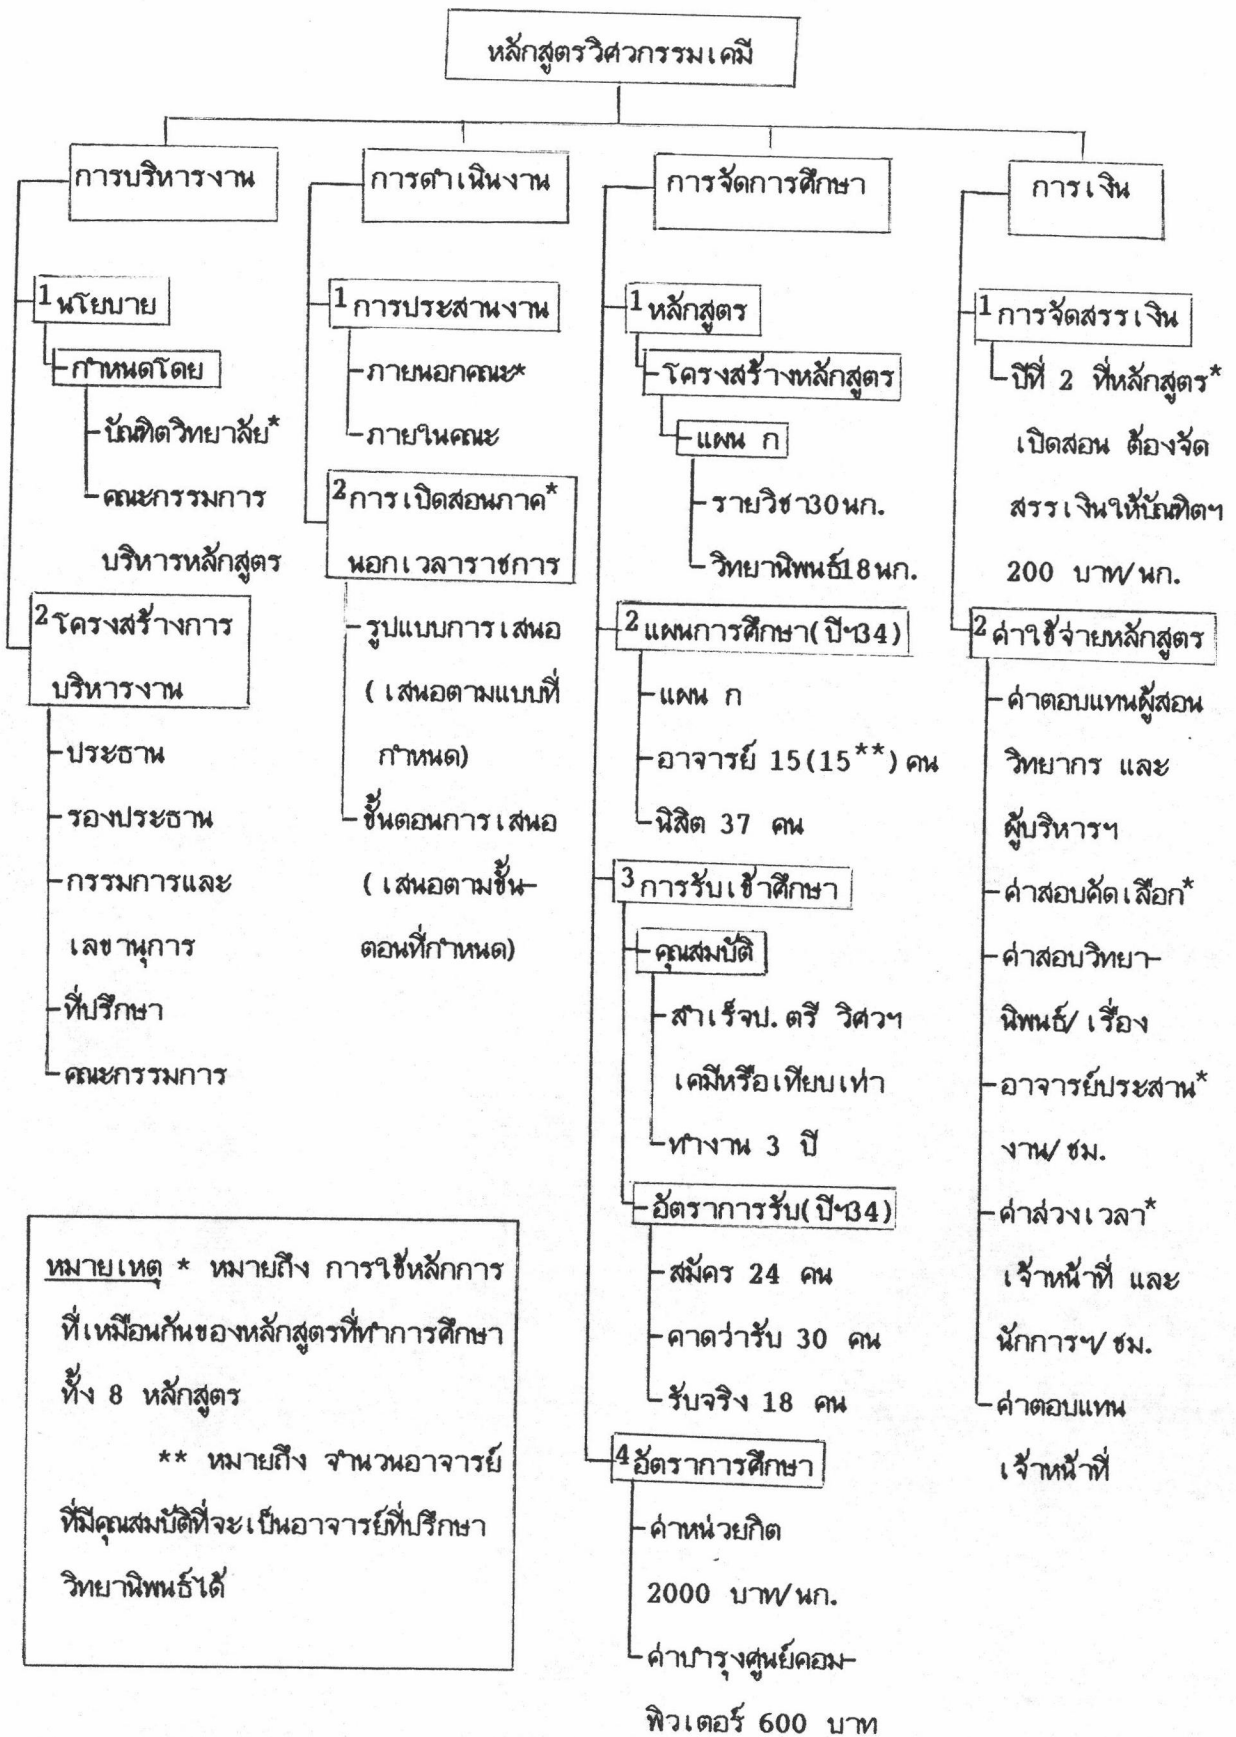 หลักสูตรวิศวกรรมเคมี
การบริหารงาน
1 นโยบาย
กำหนดโดย
บัณฑิตวิทยาลัย*
คณะกรรมการ
บริหารหลักสูตร
2 โครงสร้างการ
บริหารงาน
ประธาน
รองประธาน
กรรมการและ
เลขานุการ
ที่ปรึกษา
คณะกรรมการ
การดำเนินงาน
1 การประสานงาน
ภายนอกคณะ*
ภายในคณะ
2 การเปิดสอนภาค*
นอกเวลาราชการ
รูปแบบการเสนอ
(เสนอตามแบบที่
กำหนด)
ขั้นตอนการเสนอ
(เสนอตามขั้น-
ตอนที่กำหนด)
การจัดการศึกษา
1 หลักสูตร
โครงสร้างหลักสูตร
แผน ก
รายวิชา30นก.
วิทยานิพนธ์18นก.
2 แผนการศึกษา(ปีฯ34)
แผน ก
อาจารย์ 15(15**)คน
นิสิต 37 คน
3 การรับเข้าศึกษา
คุณสมบัติ
สำเร็จป.ตรี วิศวฯ
เคมีหรือเทียบเท่า
ทำงาน 3 ปี
อัตราการรับ(ปีฯ34)
สมัคร 24 คน
คาดว่ารับ 30 คน
รับจริง 18 คน
4 อัตราการศึกษา
ค่าหน่วยกิต
2000 บาท/นก.
ค่าบำรุงศูนย์คอม-
พิวเตอร์ 600 บาท
การเงิน
1 การจัดสรรเงิน
ปีที่ 2 ที่หลักสูตร*
เปิดสอน ต้องจัด
สรรเงินให้บัณฑิตฯ
200 บาท/นก.
2 ค่าใช้จ่ายหลักสูตร
ค่าตอบแทนผู้สอน
วิทยากร และ
ผู้บริหารฯ
ค่าสอบคัดเลือก*
ค่าสอบวิทยา-
นิพนธ์/เรื่อง
อาจารย์ประสาน*
งาน/ชม.
ค่าล่วงเวลา*
เจ้าหน้าที่ และ
นักการฯ/ชม.
ค่าตอบแทน
เจ้าหน้าที่
หมายเหตุ * หมายถึง การใช้หลักการ
ที่เหมือนกันของหลักสูตรที่ทำการศึกษา
ทั้ง 8 หลักสูตร
** หมายถึง จำนวนอาจารย์
ที่มีคุณสมบัติที่จะเป็นอาจารย์ที่ปรึกษา
วิทยานิพนธ์ได้